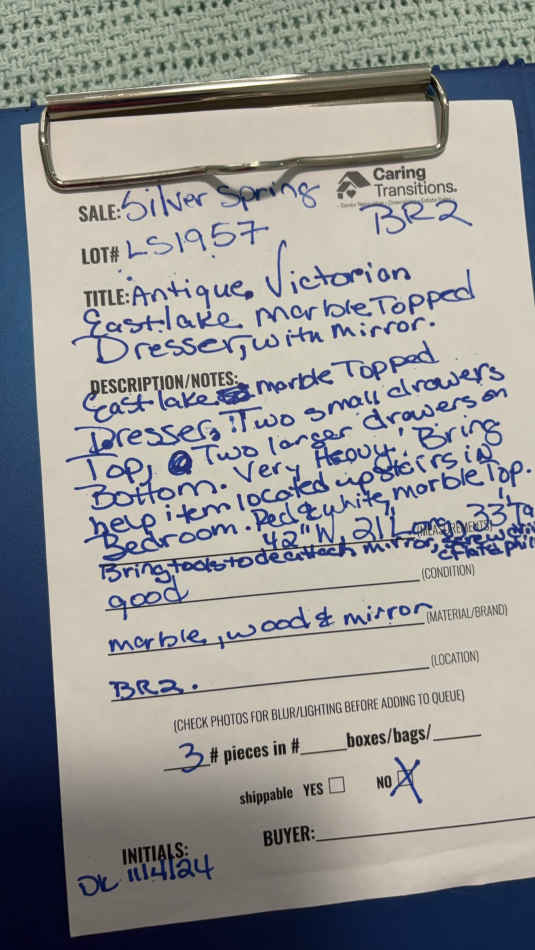 Caring
Transitions.
SALE: Silver Spring
BR2
LOT# LS1957
TITLE: Antique, Victorian
Eastlake Marble Topped
Dresser, with mirror.
DESCRIPTION/NOTES:
Eastlake marble Topped
Dresser, Two small drawers
Top, Two larger drawers on
Bottom. Very Heavy! Bring
help item located upstairs in
Bedroom. Red & white, marble Top.
42"W, 21"L 33"Ta
(MEASUREMENTS)
Bring tools to deattach mirror,
good
(CONDITION)
marble, wood & mirror
(MATERIAL/BRAND)
(LOCATION)
BR2.
(CHECK PHOTOS FOR BLUR/LIGHTING BEFORE ADDING TO QUEUE)
3 # pieces in #_____boxes/bags/_____
shippable YES NO X
BUYER:
INITIALS:
DK 11/4/24